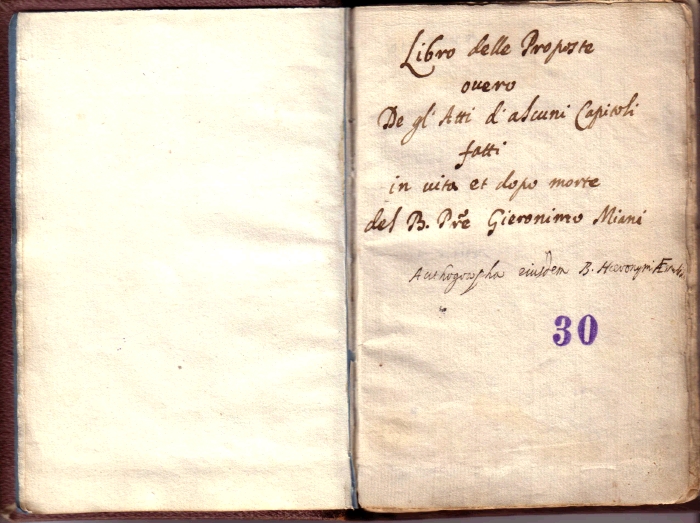 Libro delle Proposte
ouero
De gl' Atti d' alcuni Capitoli
fatti
in uita et dopo morte
del B. Pre Gieronimo Miani
eiusdem B. Hieronymi
30